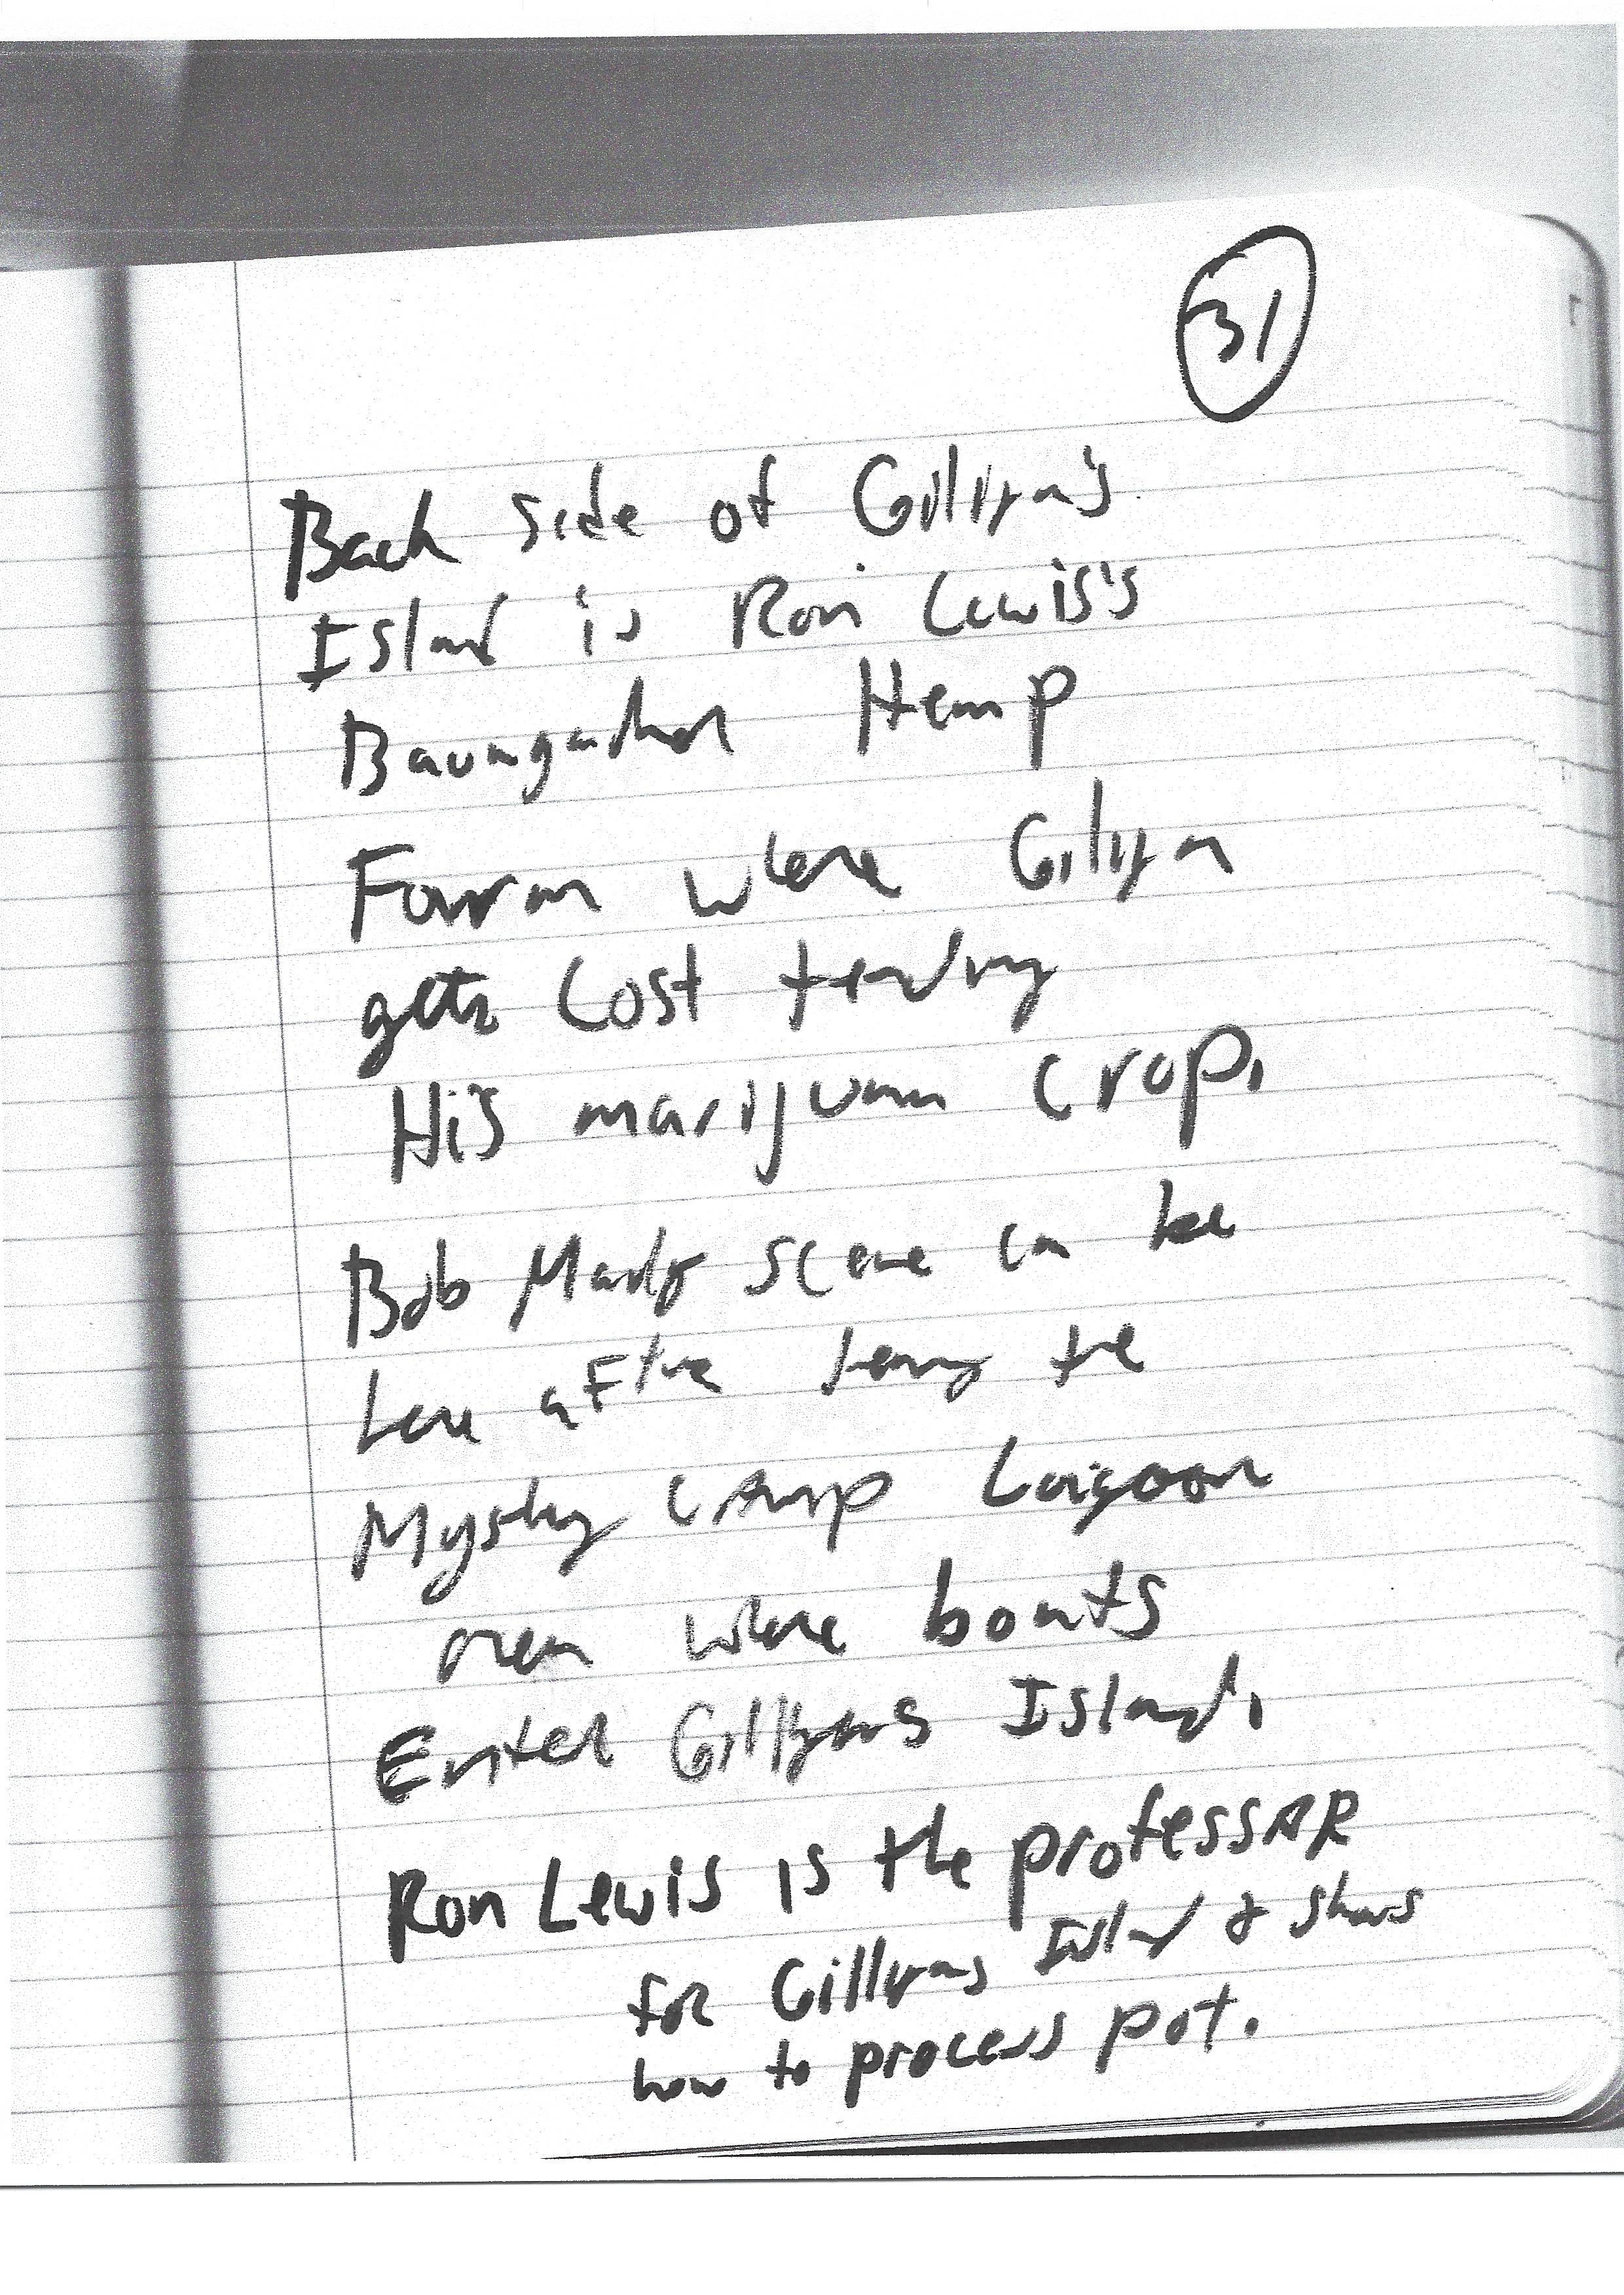 31
Back side of Gilligan's
Island is Ron Lewis's
Hemp
Farm where Gilligan
gets Lost tending
His marijuana crop.
Bob Marley scene can be
here after the
Mystery Camp Lagoon
area where boats
Enter Gilligans Island.
Ron Lewis is the professAR
for Gilligans Island & shows
how to process pot.